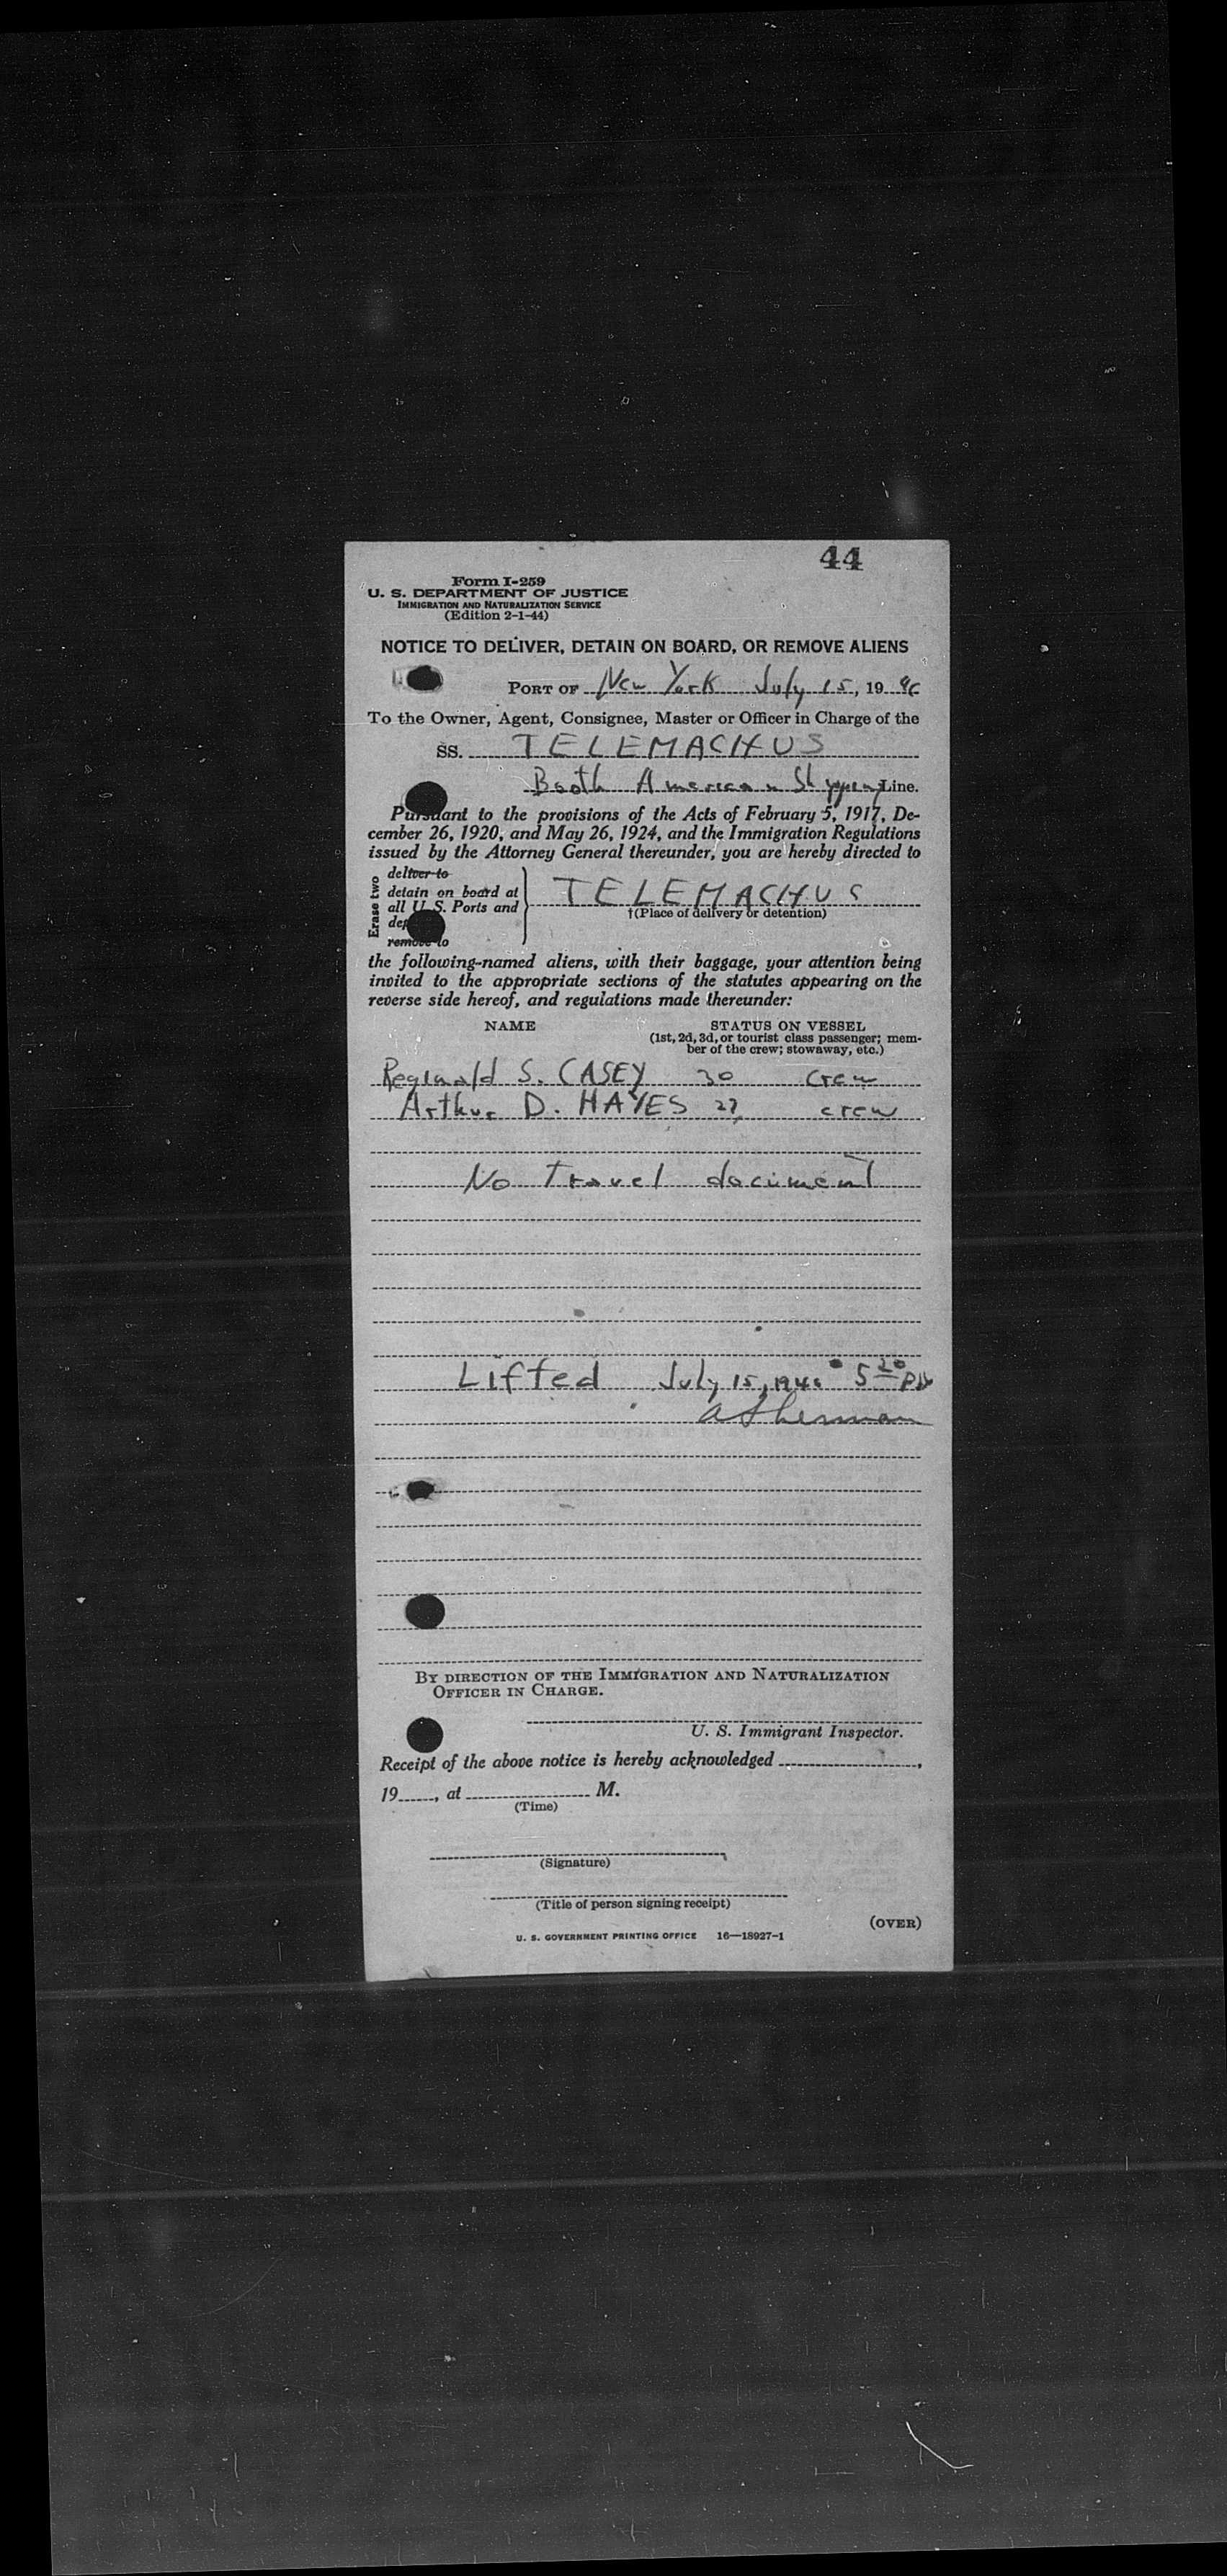 44
Form I-259
U. S. DEPARTMENT OF JUSTICE
IMMIGRATION AND NATURALIZATION SERVICE
(Edition 2-1-44)
NOTICE TO DELIVER, DETAIN ON BOARD, OR REMOVE ALIENS
PORT OF New York July 15, 19 46
To the Owner, Agent, Consignee, Master or Officer in Charge of the
SS. TELEMACHUS
Booth American Shipping Line.
Pursuant to the provisions of the Acts of February 5, 1917, De-
cember 26, 1920, and May 26, 1924, and the Immigration Regulations
issued by the Attorney General thereunder, you are hereby directed to
Erase two
deliver to
detain on board at
all U. S. Ports and
remove to
TELEMACHUS
†(Place of delivery or detention)
the following-named aliens, with their baggage, your attention being
invited to the appropriate sections of the statutes appearing on the
reverse side hereof, and regulations made thereunder:
NAME STATUS ON VESSEL
(1st, 2d, 3d, or tourist class passenger; mem-
ber of the crew; stowaway, etc.)
Reginald S. CASEY 30 Crew
Arthur D. HAYES 27 crew
No Travel document
Lifted July 15, 1946 5 20 PM
A Sherman
BY DIRECTION OF THE IMMIGRATION AND NATURALIZATION
OFFICER IN CHARGE.
U. S. Immigrant Inspector.
Receipt of the above notice is hereby acknowledged ,
19 , at M.
(Time)
(Signature)
(Title of person signing receipt)
(OVER)
U. S. GOVERNMENT PRINTING OFFICE 16—18927-1